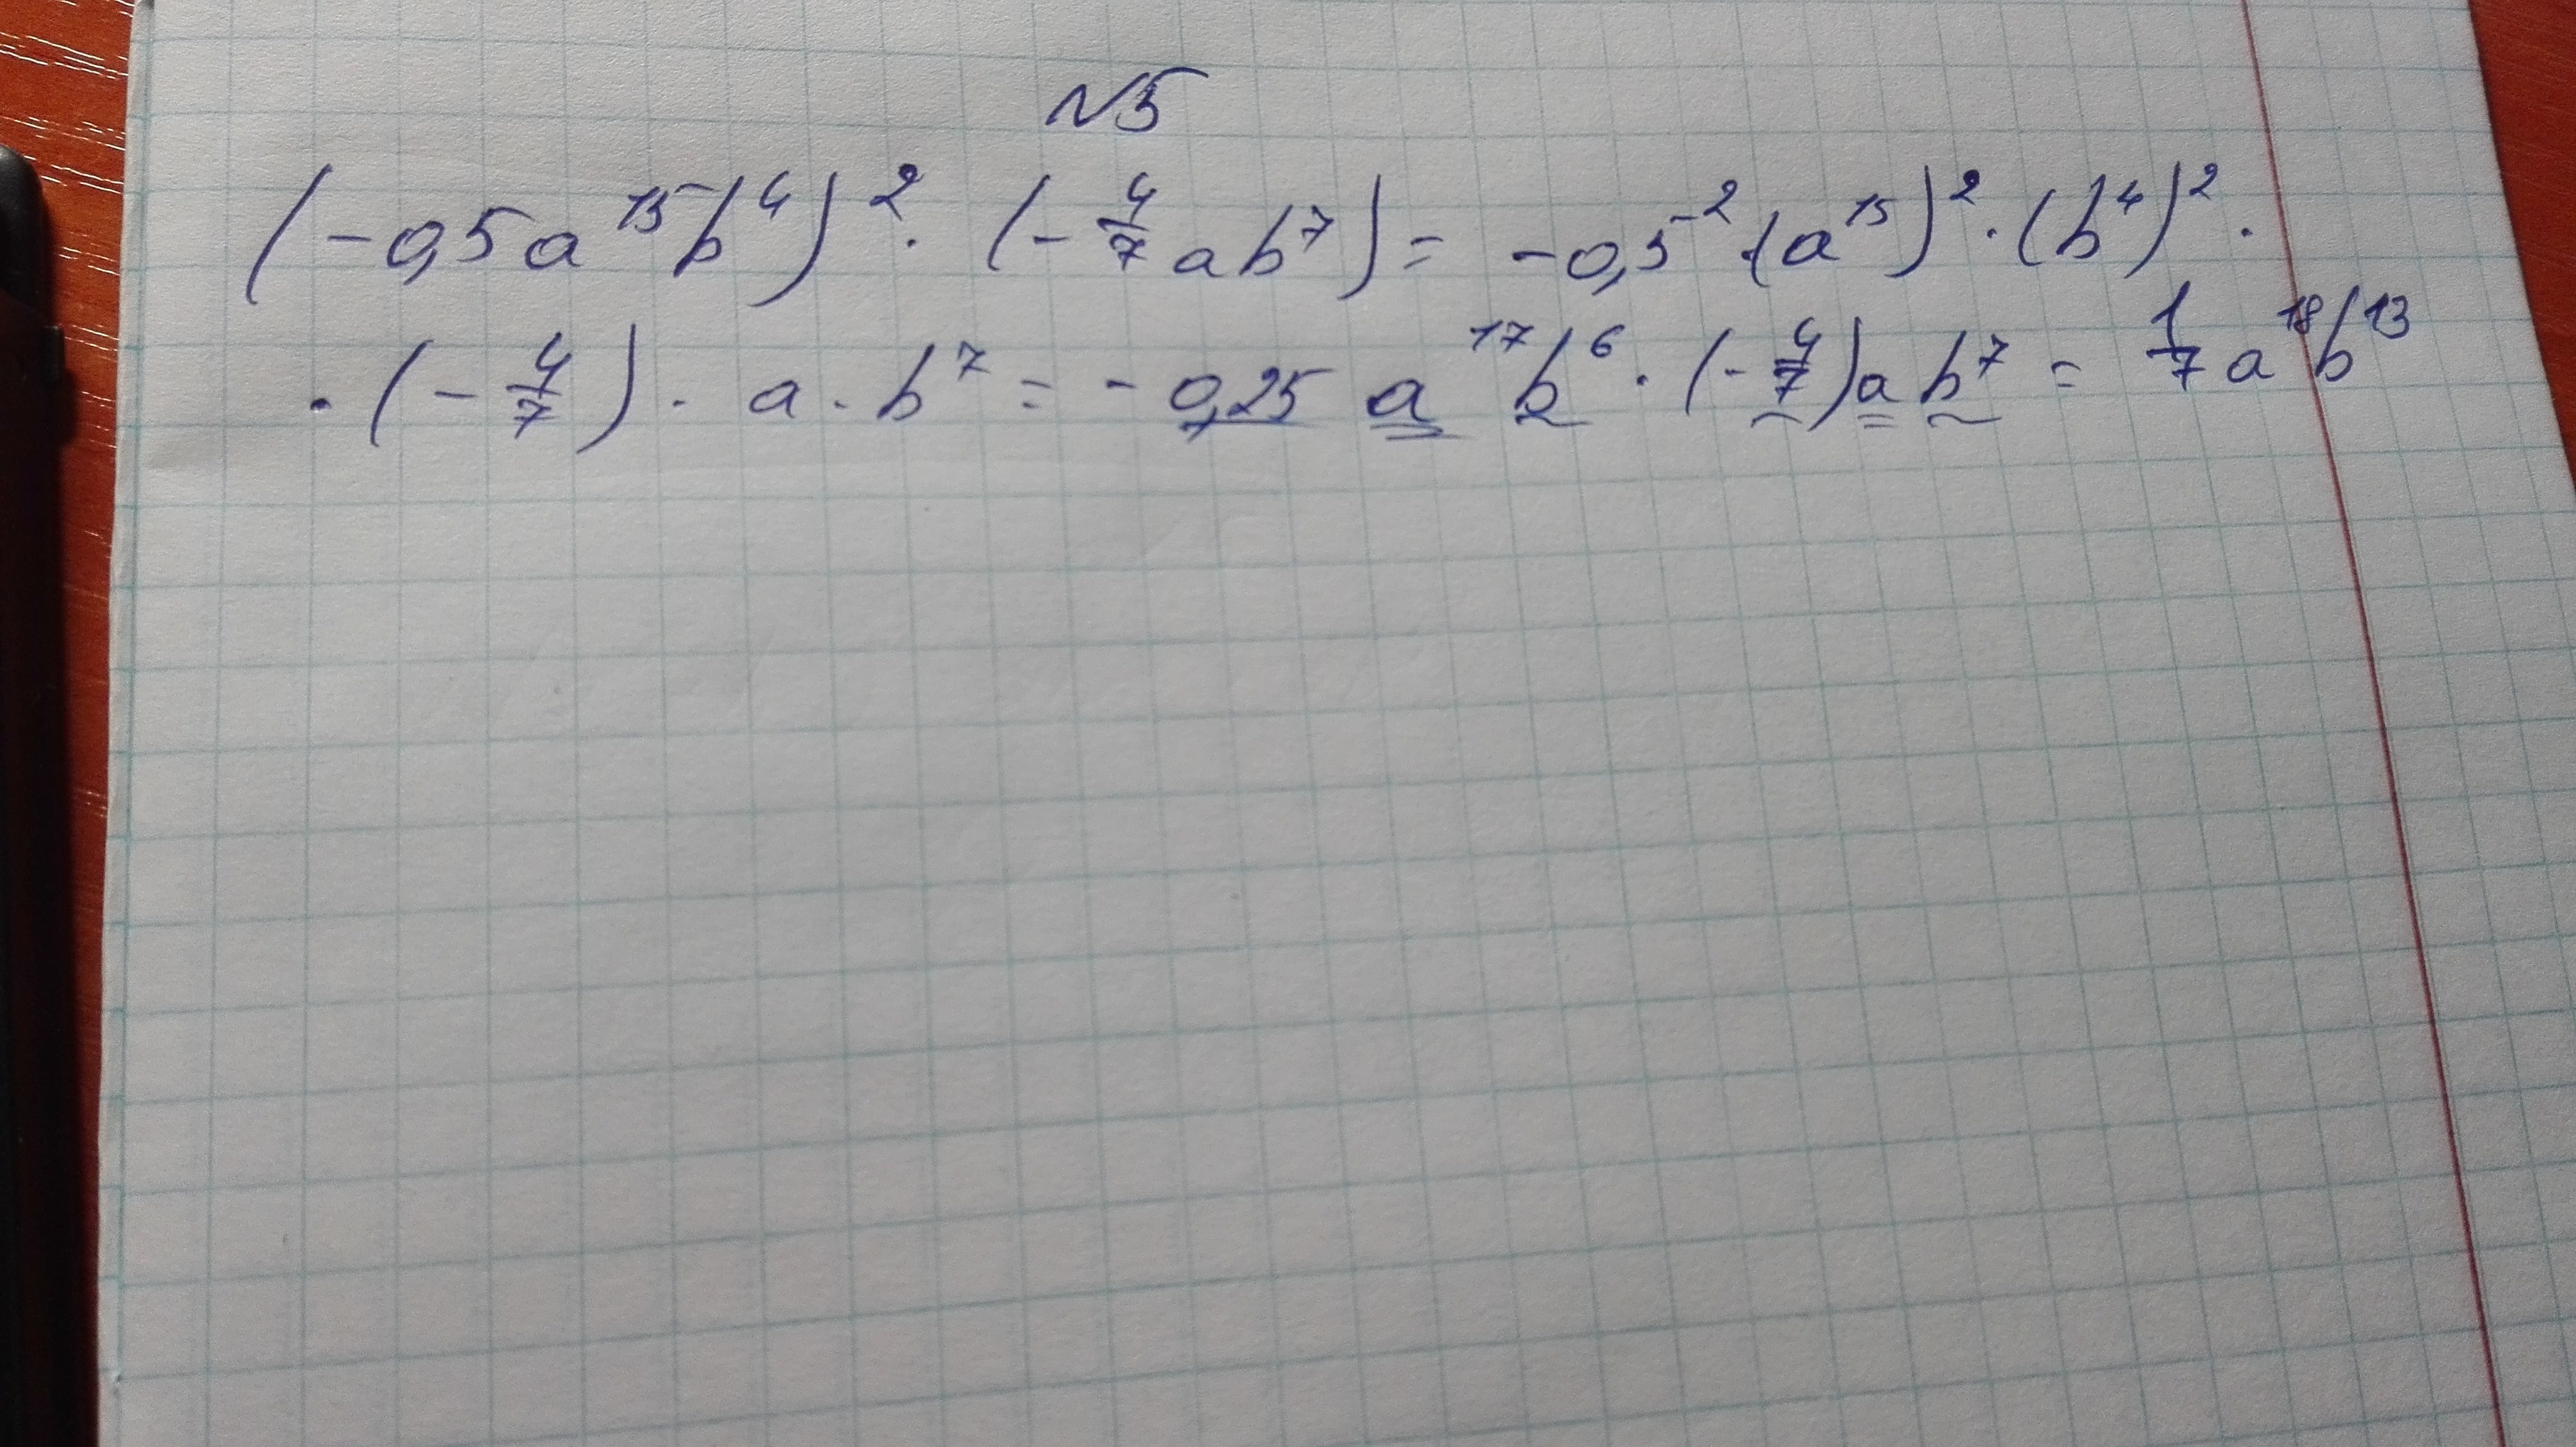 №5
(-0,5a¹⁵b⁴)² · (-4/7 ab⁷) = -0,5² · (a¹⁵)² · (b⁴)² ·
· (-4/7) · a · b⁷ = -0,25 a¹⁷b⁶ · (-4/7)ab⁷ = 1/7 a¹⁸b¹³